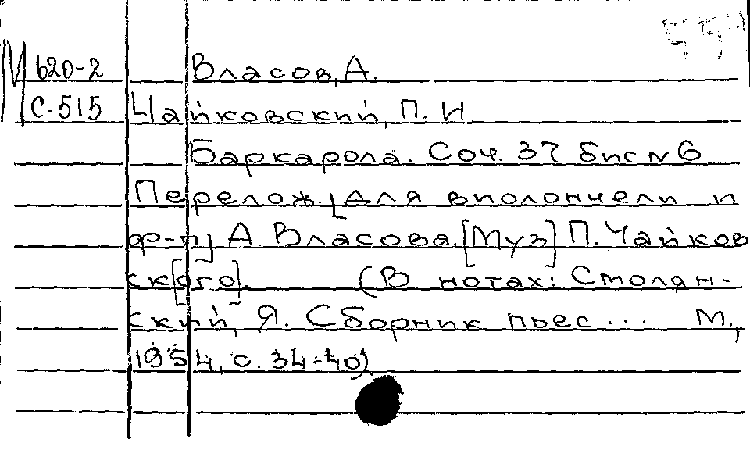 М 620-2 Власов, А.
С-515 Чайковский, П. И
Баркарола. Соч. 37 бис № 6
Перелож. [для виолончели и
ф-п] А Власова. [Муз] П. Чайков
ск[ого]. (В нотах: Столян-
ский, Я. Сборник пьес... М.,
1954, с. 34-40)